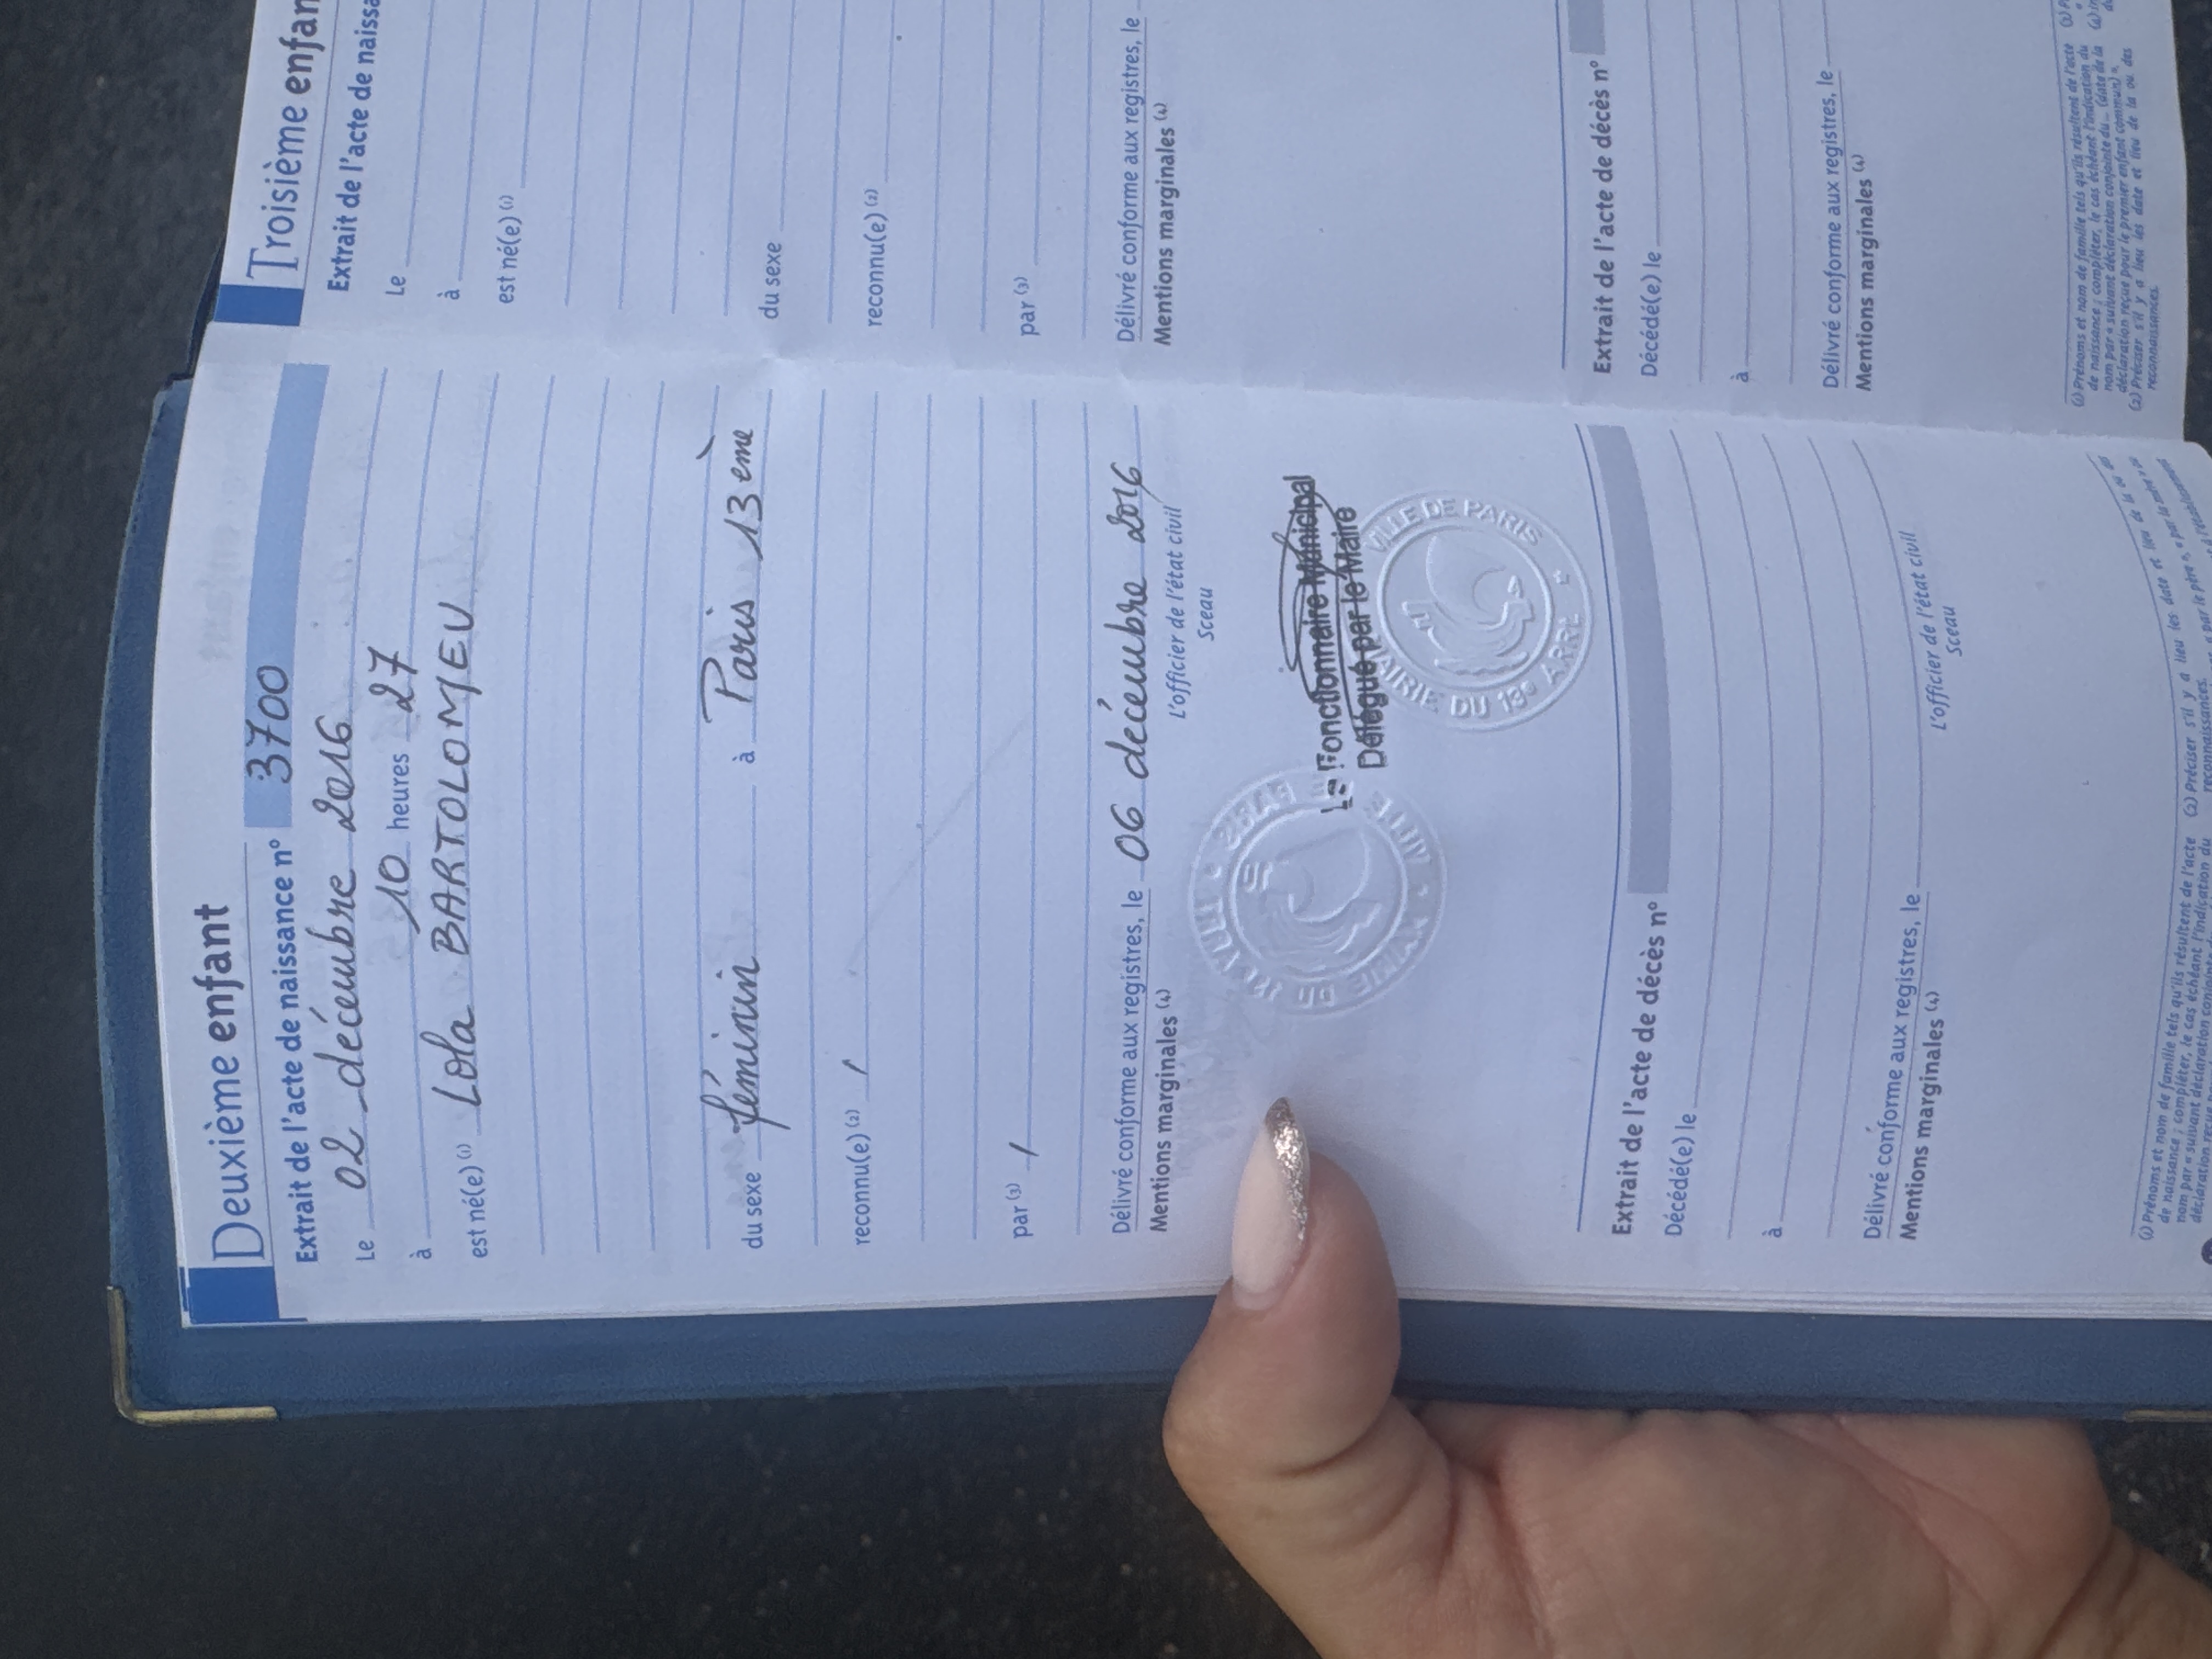 Deuxième enfant
Extrait de l'acte de naissance n° 3700
Le 02 décembre 2016
à 10 heures 27
est né(e) (1) Lola BARTOLOMEU
du sexe féminin à Paris 13ème
reconnu(e) (2) /
par (3) /
Délivré conforme aux registres, le 06 décembre 2016
Mentions marginales (4)
L'officier de l'état civil
Sceau
Le Fonctionnaire Municipal
Délégué par le Maire
VILLE DE PARIS
MAIRIE DU 13e ARRt
Extrait de l'acte de décès n°
Décédé(e) le
à
Délivré conforme aux registres, le
Mentions marginales (4)
L'officier de l'état civil
Sceau
(1) Prénoms et nom de famille tels qu'ils résultent de l'acte
de naissance ; compléter, le cas échéant l'indication du
nom par « suivant déclaration conjointe
(2) Préciser s'il y a lieu les date et lieu de la ou des
reconnaissances.
Troisième enfan
Extrait de l'acte de naissa
Le
à
est né(e) (1)
du sexe
reconnu(e) (2)
par (3)
Délivré conforme aux registres, le
Mentions marginales (4)
Extrait de l'acte de décès n°
Décédé(e) le
à
Délivré conforme aux registres, le
Mentions marginales (4)
(1) Prénoms et nom de famille tels qu'ils résultent de l'acte
de naissance ; compléter, le cas échéant l'indication du
nom par « suivant déclaration conjointe du... (date de la
déclaration reçue pour le premier enfant commun) ».
(2) Préciser s'il y a lieu les date et lieu de la ou des
reconnaissances.